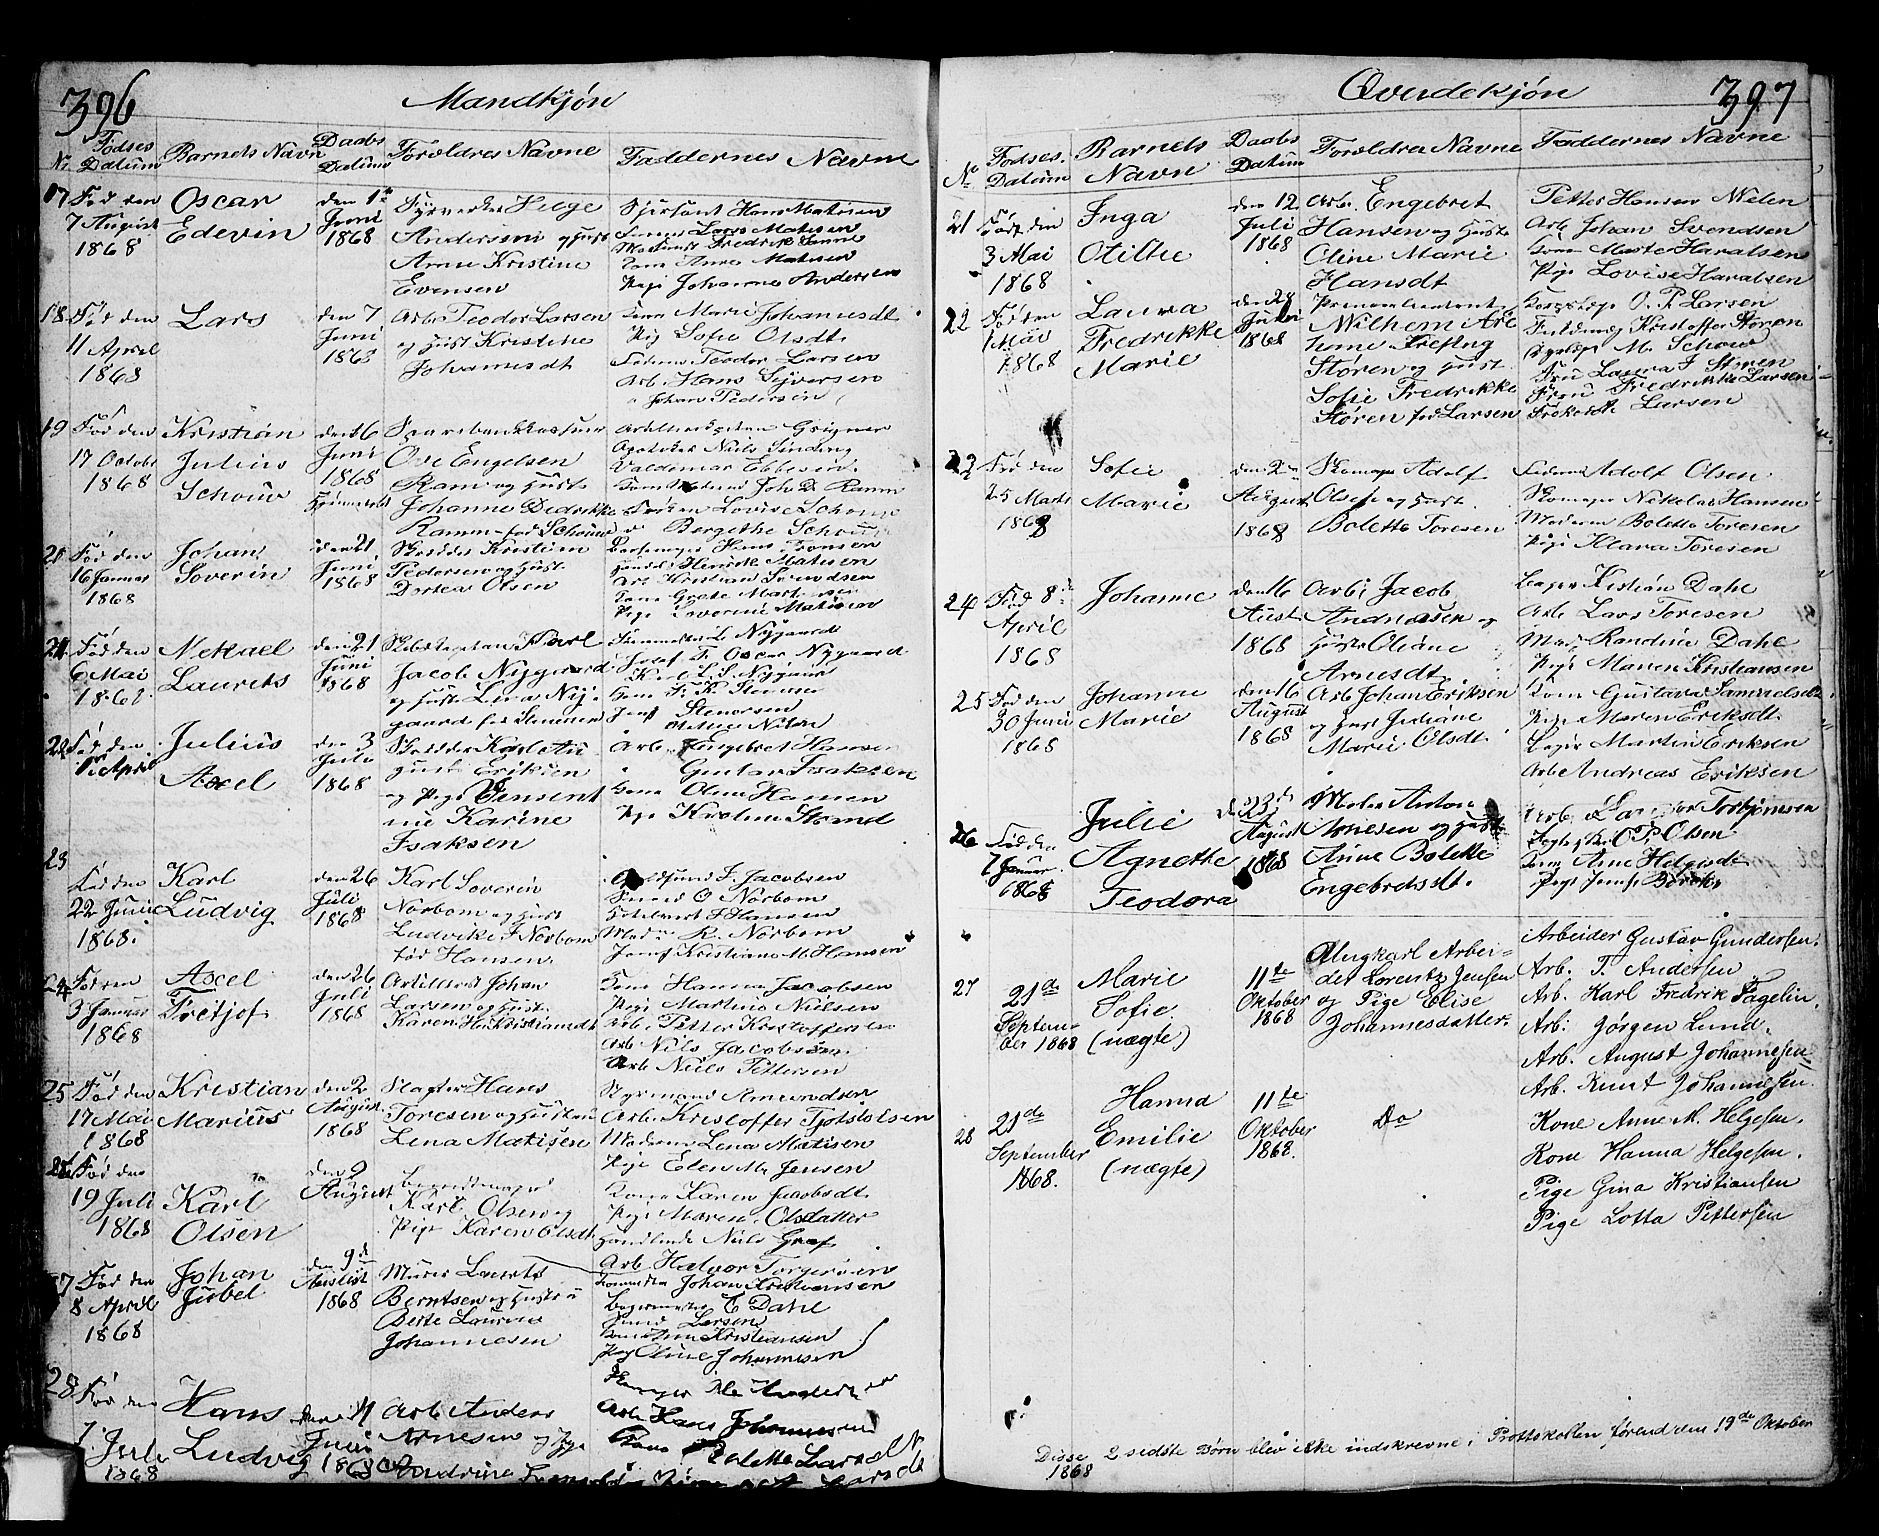 396
Mandkjøn
Nr Fødses Datum
Barnets Navn
Daabs Datum
Forældres Navne
Faddernes Navne
17 Fød den
7 August
1868
Oscar
Edevin
den 1
Juni
1868
Fyrverker Helge
Andersen og Hust
Anne Kristine
Evensen
Sjersant Hans Matisen
Lars Matisen
Fredrik
Kone Anne Matisen
Pige Johanne Andersen
18 Fød den
11 April
1868
Lars
den 7
Juni
1868
Arb Teodor Larsen
og Hust Kristine
Johannesdt
Kone Marie Johannesdt
Pig Sofie Olsdt.
Faderen Teodor Larsen
Arb. Hans Syversen
" Johan Pedersen
19 Fød den
17 Octobr
1868
Kristian
Julius
Schouw
den 16
Juni
1868
Hjemmedt
Sparebankkasserer
Ove Engelsen
Ram og Hust
Johanne Diderikke
Ramm fød Schouw
Grigner
Apoteker Niels Sinding
Valdemar Ebbesen.
Joh D. Ramm
Frøken Lovise Schouw
" Bergithe Schouw
20 Fød den
16 Januar
1868
Johan
Soverin
den 21
Juni
1868
Skredder Kristian
Pedersen og Hust
Dortea Olsen
Hans Hansen
Henrik Matisen
Arb Kristian Svendsen
Kone Grete Mart
Pige Severine Matisen
21 Fød den
6 Mai
1868
Mekael
Laurets
den 21
Juni
1868
Skibskaptan Karl
Jacob Nygaard
og Hust Lena Ny-
gaard fød Stenersen
Nygaard
Josef F. Oscar Nygaard
Karl L. S. Nygaar
Stenersen
22 Fød den
April
Julius
Axel
den 3
Juli
1868
Skredder Karl Au
gust Eriksen
og Pige Jensent
ine Karine
Isaksen
Arb. Engebret Hansen
" Gustav Isaksen
Kone Oline Hansen
Pige Kroline Strand
23
Fød den
22 Juni
1868.
Karl
Ludvig
den 26
Juli
1868
Karl Soverin
Norbom og Hust
Ludvike J Norbom
fød Hansen.
J. Jacobsen
O Norbom
J Hansen
R. Norbom
Jomf Kristiane M. Hansen
24 Fød den
3 Januar
1868
Axel
Fretjof
den 26
Juli
1868
Artillerist Johan
Larsen og Hust
Karen H. Kristiansdt
Kone Hanna Jacobsen
Pige Martine Nielsen
Arb. Petter Kristoffersen
Arb Nils Jacobsen
Arb Niels Pettersen
25 Fød den
17 Mai
1868
Kristian
Marius
den 2
August
1868
Slagter Hans
Toresen og Hustru
Lena Matisen
Styrmand Amundsen
Arb. Kristoffer Tjostolsen
Moderen Lena Matisen
Pige Elen M. Jensen
26 Fød den
19 Juli
1868
Karl
Olsen
den 9
August
Karl Olsen og
Pige Karen Olsdt
Kone Karen Jacobsdt.
Pige Maren Olsdatter
Handlende Niels Graf
27 Fød den
8 April
1868
Johan
Jubel
den 9d
August
1868
Murer Laurits
Berntsen og Hustru
Berte Laurine
Johannesen
Arb Halvor Torgersen
Johan Kristiansen
C Dahl
Larsen
Kristiansen
Pig Oline Johannesen
28 Fød den
7 Juli
1868
Hans
Ludvig
Juni
1868
Arb Anders
Arnesen og Pige
Andrine
Skomager Ole Andersen
Arb Hans Johannesen
Kone Bolette Larsdt
397
Qvindekjøn
No Fødses. Datum
Barnets Navn
Daabs Datum
Forældres Navne
Faddernes Navne
21 Født den
3 Mai
1868
Inga
Otilie
den 12
Juli
1868
Arb. Engebret
Hansen og Hust
Oline Marie
Hansdt
Petter Hansen Mælen
Arb Johan Svendsen
Kone Marte Haralsen
Pige Lovise Haralsen
22 Fød den
1 Mai
1868
Laura
Fredrikke
Marie
den 28
Juni
1868
Premierlieutenant
Wilhem
Støren og Hust
Sofie Fredrikke
Støren fød Larsen
O. P. Larsen
Kristoffer Støren
M. Schouw
Fru Laura J Støren
Frøu Fredrikke Larsen
Frøken Larsen
23 Fød den
25 Marts
1868
Sofie
Marie
den 2
August
1868
Skomager Adolf
Olsen og Hust.
Bolette Toresen
Faderen Adolf Olsen
Skomager Nikolai Hansen
Moderen Bolette Toresen
Pige Klara Toresen
24 Fød 8de
April
1868
Johanne
den 16
Aust
1868
Arb: Jacob
Andreasen og
Hust Oliane
Arnesdt.
Kristian Dahl
Arb Lars Toresen
Randine Dahl
Pige Maren Kristiansen
25 Fød den
30 Juni
1868
Johanne
Marie
den 16
August
1868
Arb Johan Eriksen
og Hust Juliane
Marie Olsdt.
Kone Gustava Samuelsdt
Pige Maren Eriksdt.
Martin Eriksen
Arb Andreas Eriksen
26 Fød den
7 Januar
1868
Julie
Agnethe
Teodora
d. 23d
August
1868
Maler Anton
Arnesen og Hust
Anne Bolette
Engebretsdt.
Arb. Torbjørnsen
O. P. Olsen
Kone Anne Helgesdt
Pige
27
21de
Septem-
ber 1868
Marie
Sofie.
(uægte)
11te
Oktober
1868
Ungkarl Arbei-
der Lorentz Jensen
og Pige Elise
Johannesdatter.
Arbeider Gustav Gundersen.
Arb. T. Andersen
Arb. Karl Fredrik Fagelin.
Arb. Jørgen Lund.
Arb. August Johannesen
28
21de
September
1868.
Hanna
Emilie
(uægte)
11te
Oktober
1868.
Do
Arb. Knut Johannesen.
Kone Anne M. Helgesen.
Kone Hanna Helgesen.
Pige Gina Kristiansen
Pige Lotta Pettersen
Disse 2 sidste Børn blev ikke indskrevne i Protokollen førend den 19de Oktober
1868